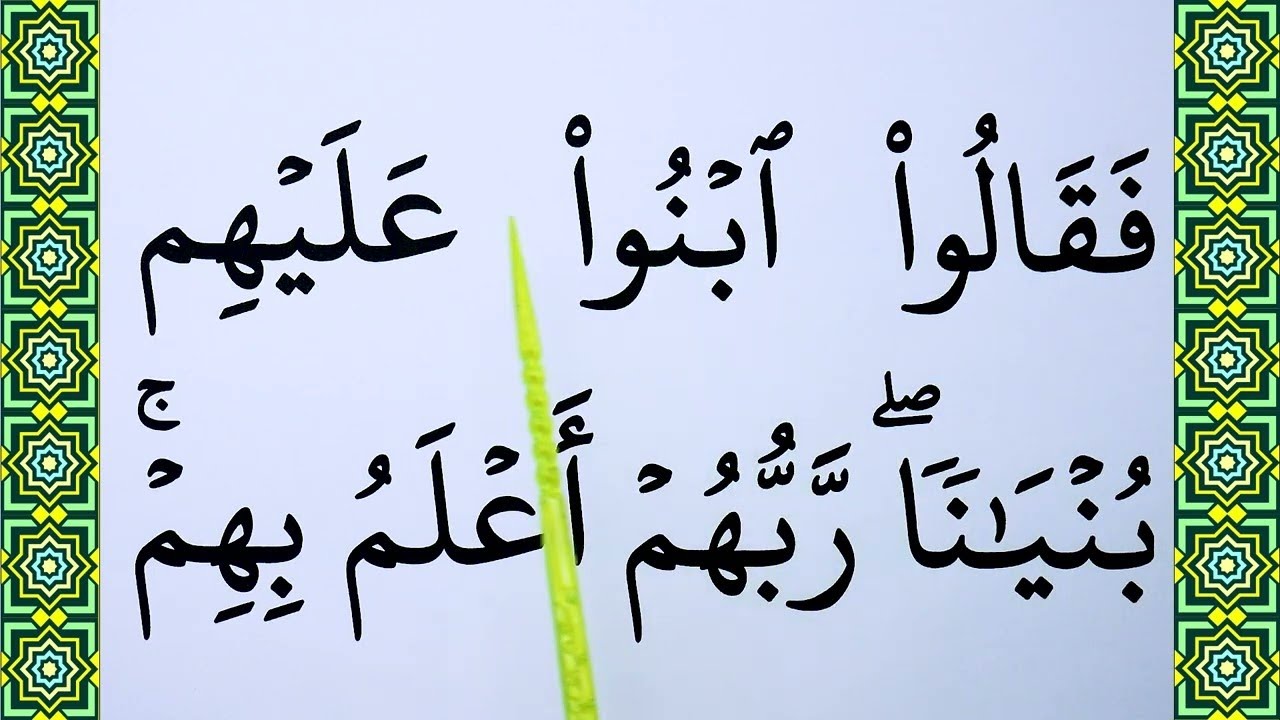 فَقَالُوا۟ ٱبۡنُوا۟ عَلَيۡهِم
بُنۡيَـٰنَاۖ رَّبُّهُمۡ أَعۡلَمُ بِهِمۡۚ